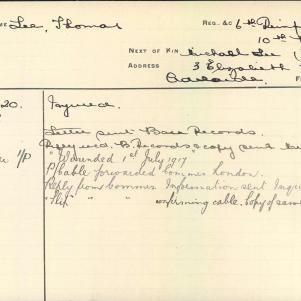 ME Lee, Thomas REG. &C 6th Reinf
10th
NEXT OF KIN Michael Lee
ADDRESS 3 Elizabeth
Adelaide.
20. Injured.
Letter sent Base Records.
Reply recd. B. Records & copy sent
1/P "Wounded 1st July 1917
P/Cable forwarded Commer London.
Reply from Commer. Information sent Inqui
"Flip" " confirming cable. Copy of same